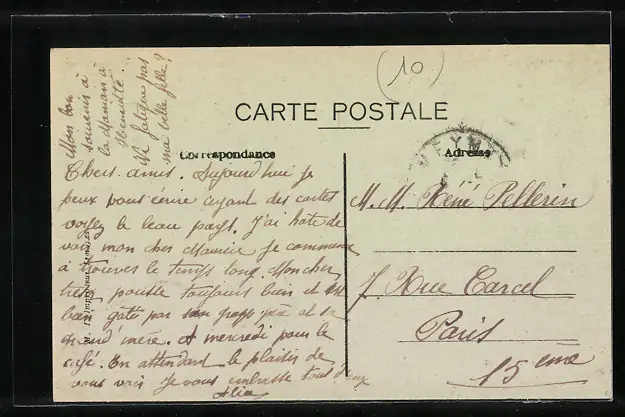 (10)
CARTE POSTALE
Correspondance
Adresse
Mon bon
souvenir à
la Maman à
Henriette.
Ne fatigue pas
ma belle fille?
Chers amis. Aujourd'hui je
peux vous écrire ayant des cartes
voyez le beau pays. J'ai hate de
voir mon cher Maurice je commence
à trouver le temps long. Mon cher
pousse toujours bien et est
bien gâté par son et sa
grand'mère. A mercredi pour le
café. En attendant le plaisir de
vous voir je vous embrasse tous deux
M. M. René Pellerin
7. Rue Carcel
Paris
15 eme